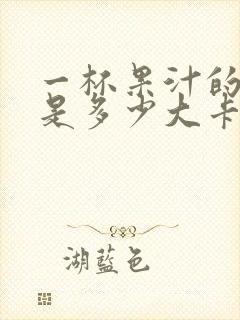 一杯果汁的
是多少大卡
湖蓝色